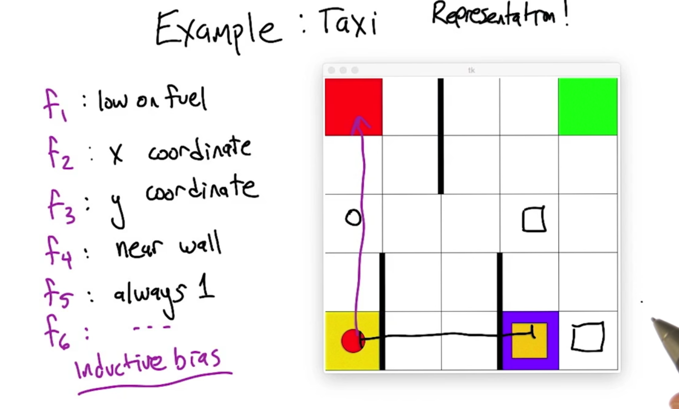 Example : Taxi
Representation!
tk
f1 : low on fuel
f2 : x coordinate
f3 : y coordinate
f4 : near wall
f5 : always 1
f6 : ---
Inductive bias